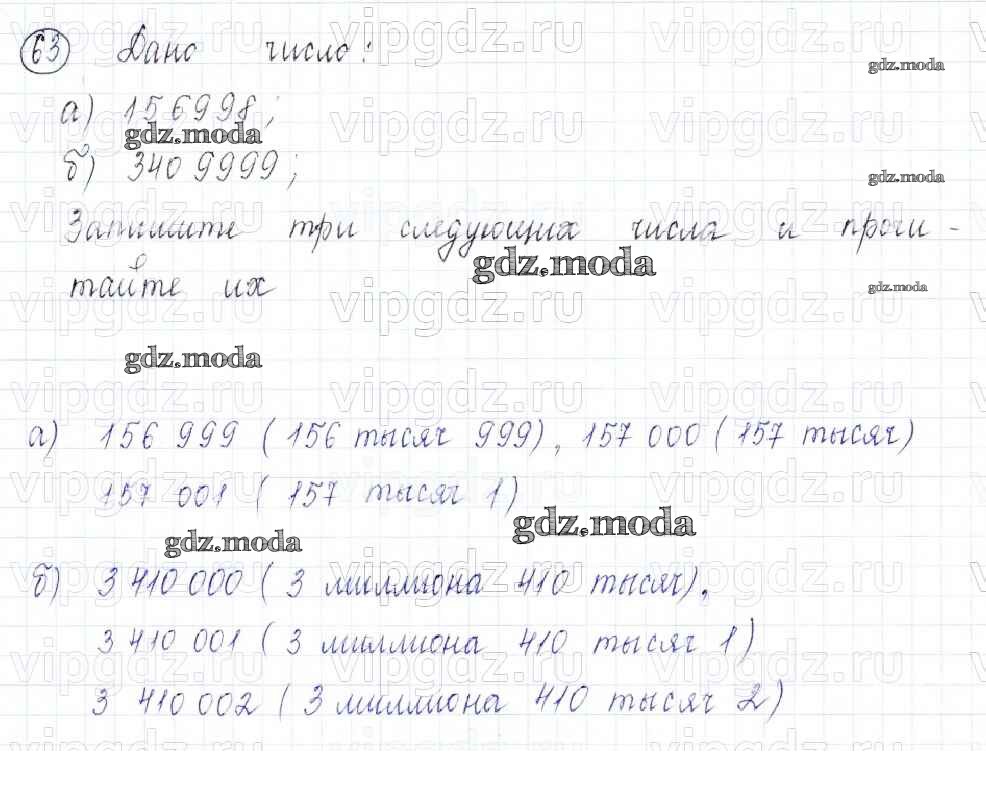 63 Дано число:
а) 156998;
gdz.moda
б) 3409999;
Запишите три следующих числа и прочи-
тайте их
gdz.moda
gdz.moda
gdz.moda
gdz.moda
gdz.moda
а) 156 999 (156 тысяч 999), 157 000 (157 тысяч)
157 001 (157 тысяч 1)
gdz.moda
gdz.moda
б) 3 410 000 (3 миллиона 410 тысяч),
3 410 001 (3 миллиона 410 тысяч 1)
3 410 002 (3 миллиона 410 тысяч 2)
vipgdz.ru